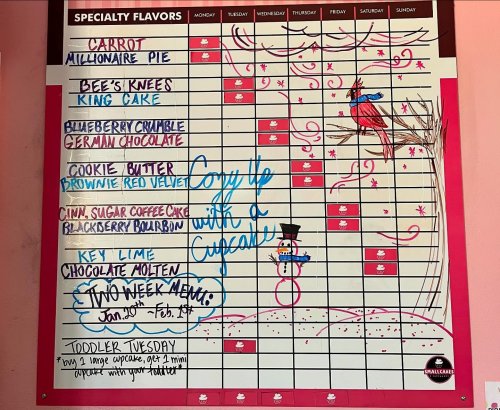 SPECIALTY FLAVORS MONDAY TUESDAY WEDNESDAY THURSDAY FRIDAY SATURDAY SUNDAY
CARROT
MILLIONAIRE PIE
BEE'S KNEES
KING CAKE
BLUEBERRY CRUMBLE
GERMAN CHOCOLATE
COOKIE BUTTER
BROWNIE RED VELVET
CINN. SUGAR COFFEE CAKE
BLACKBERRY BOURBON
KEY LIME
CHOCOLATE MOLTEN
Cozy Up
with a
Cupcake
TWO WEEK MENU:
Jan. 20th - Feb. 1st
TODDLER TUESDAY
*buy 1 large cupcake, get 1 mini
cupcake with your toddler*
SMALLCAKES